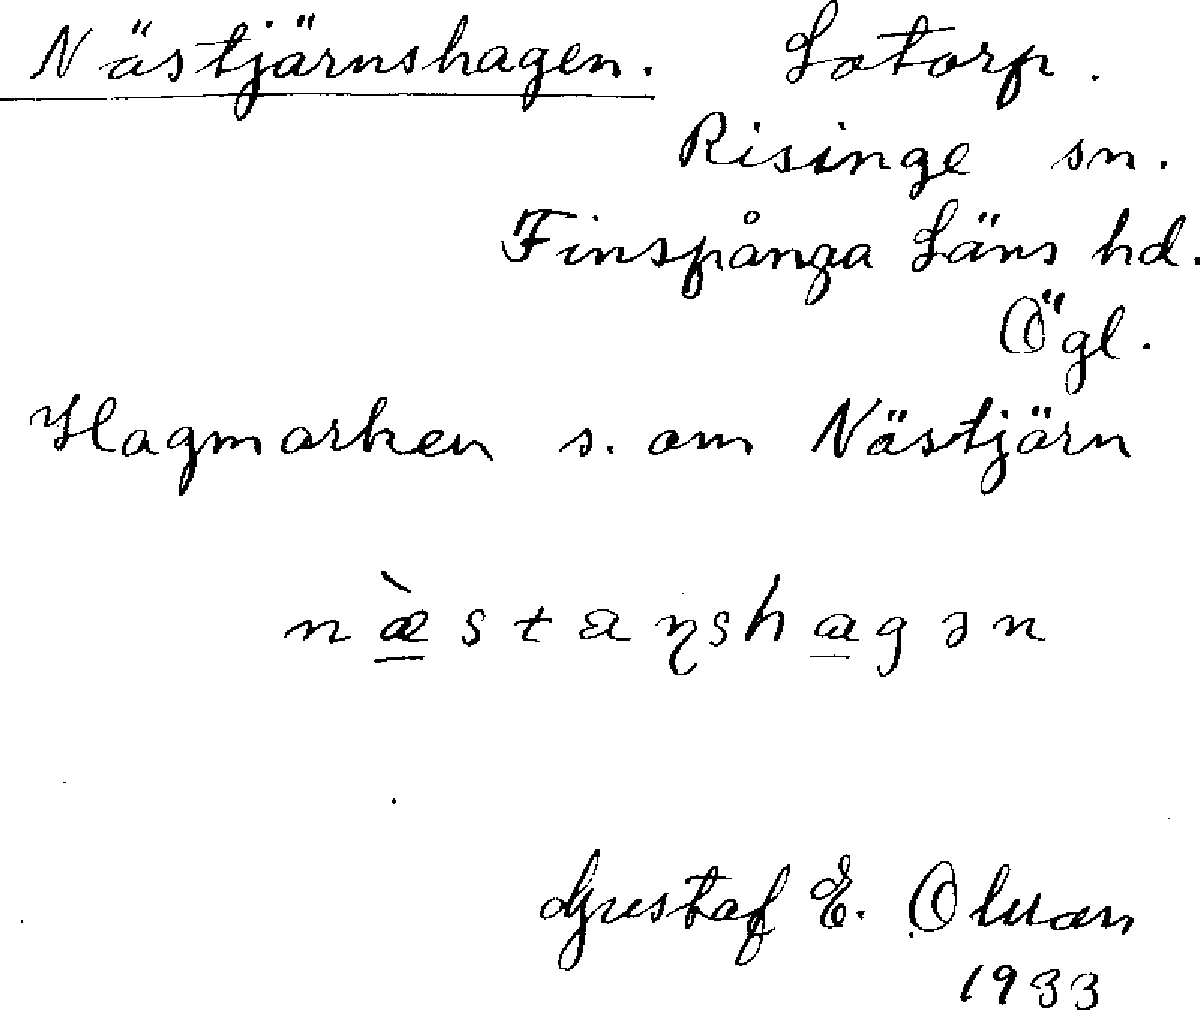 Nästjärnshagen. Lotorp.
Risinge sn.
Finspånga Läns hd.
Ögl.
Hagmarken s. om Nästjärn
næ̀staɳshagən
Gustaf E.
1933